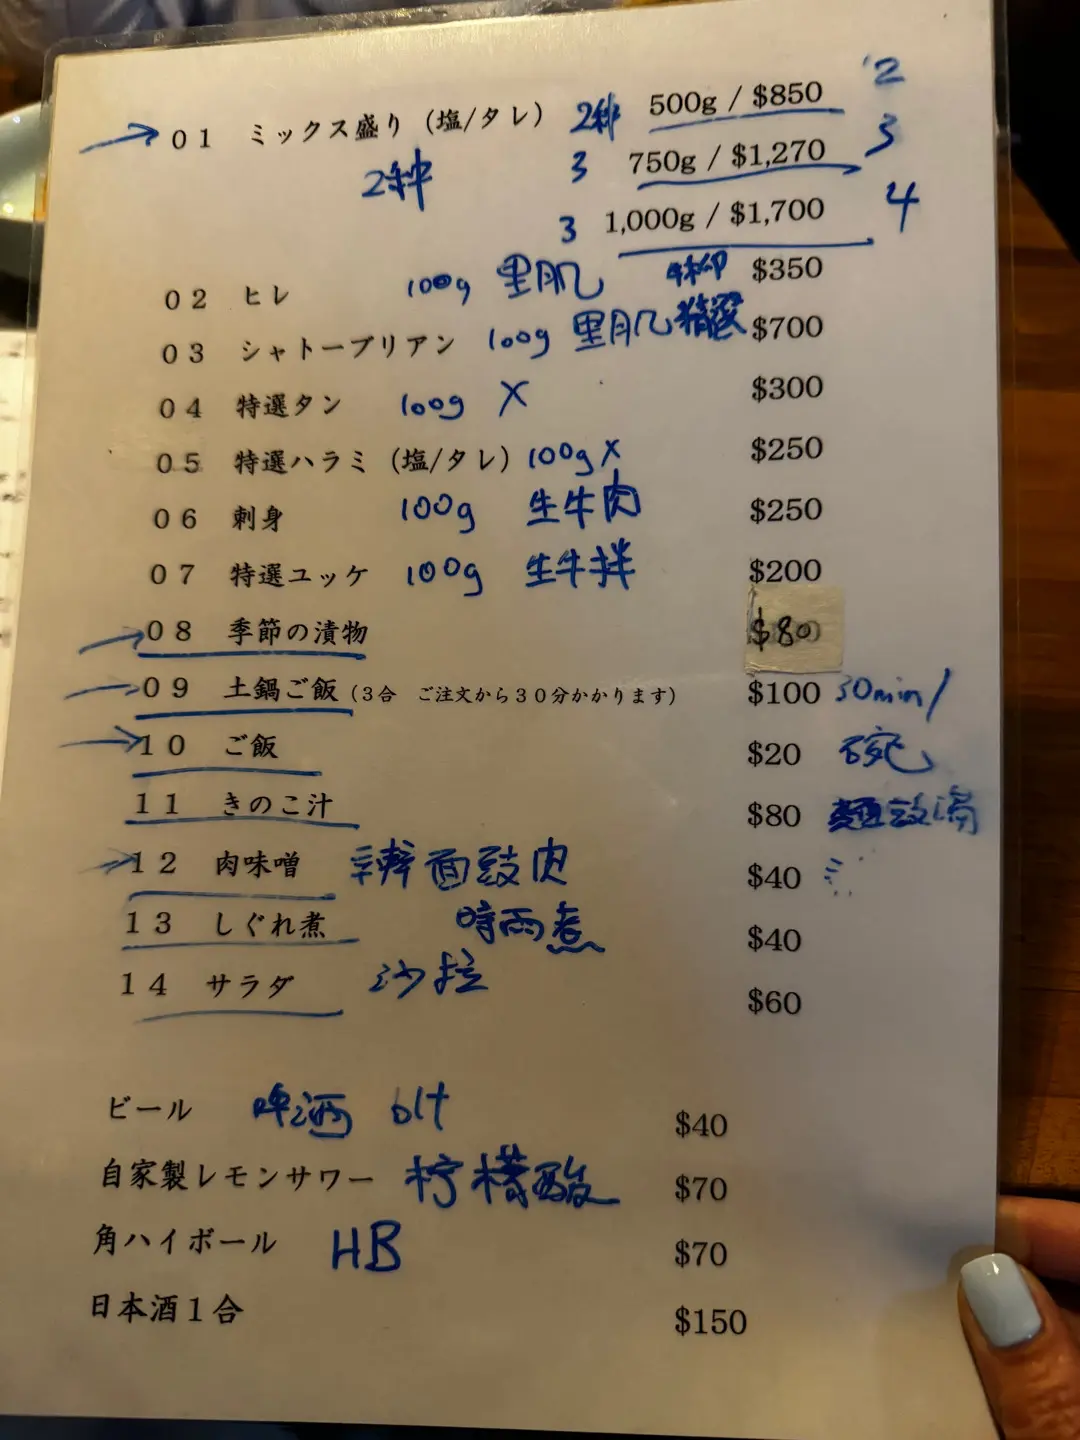 01 ミックス盛り（塩/タレ） 2种 500g / $850 '2
2种 3 750g / $1,270 3
3 1,000g / $1,700 4
02 ヒレ 100g 里肌 牛柳 $350
03 シャトーブリアン 100g 里肌精選 $700
04 特選タン 100g X $300
05 特選ハラミ（塩/タレ） 100g X $250
06 刺身 100g 生牛肉 $250
07 特選ユッケ 100g 生牛拌 $200
08 季節の漬物 $80
09 土鍋ご飯（３合 ご注文から３０分かかります） $100 30min/
10 ご飯 $20 碗
11 きのこ汁 $80 麵豉湯
12 肉味噌 辣面豉肉 $40
13 しぐれ煮 時雨煮 $40
14 サラダ 沙拉 $60
ビール 啤酒 $40
自家製レモンサワー 柠檬酸 $70
角ハイボール HB $70
日本酒１合 $150